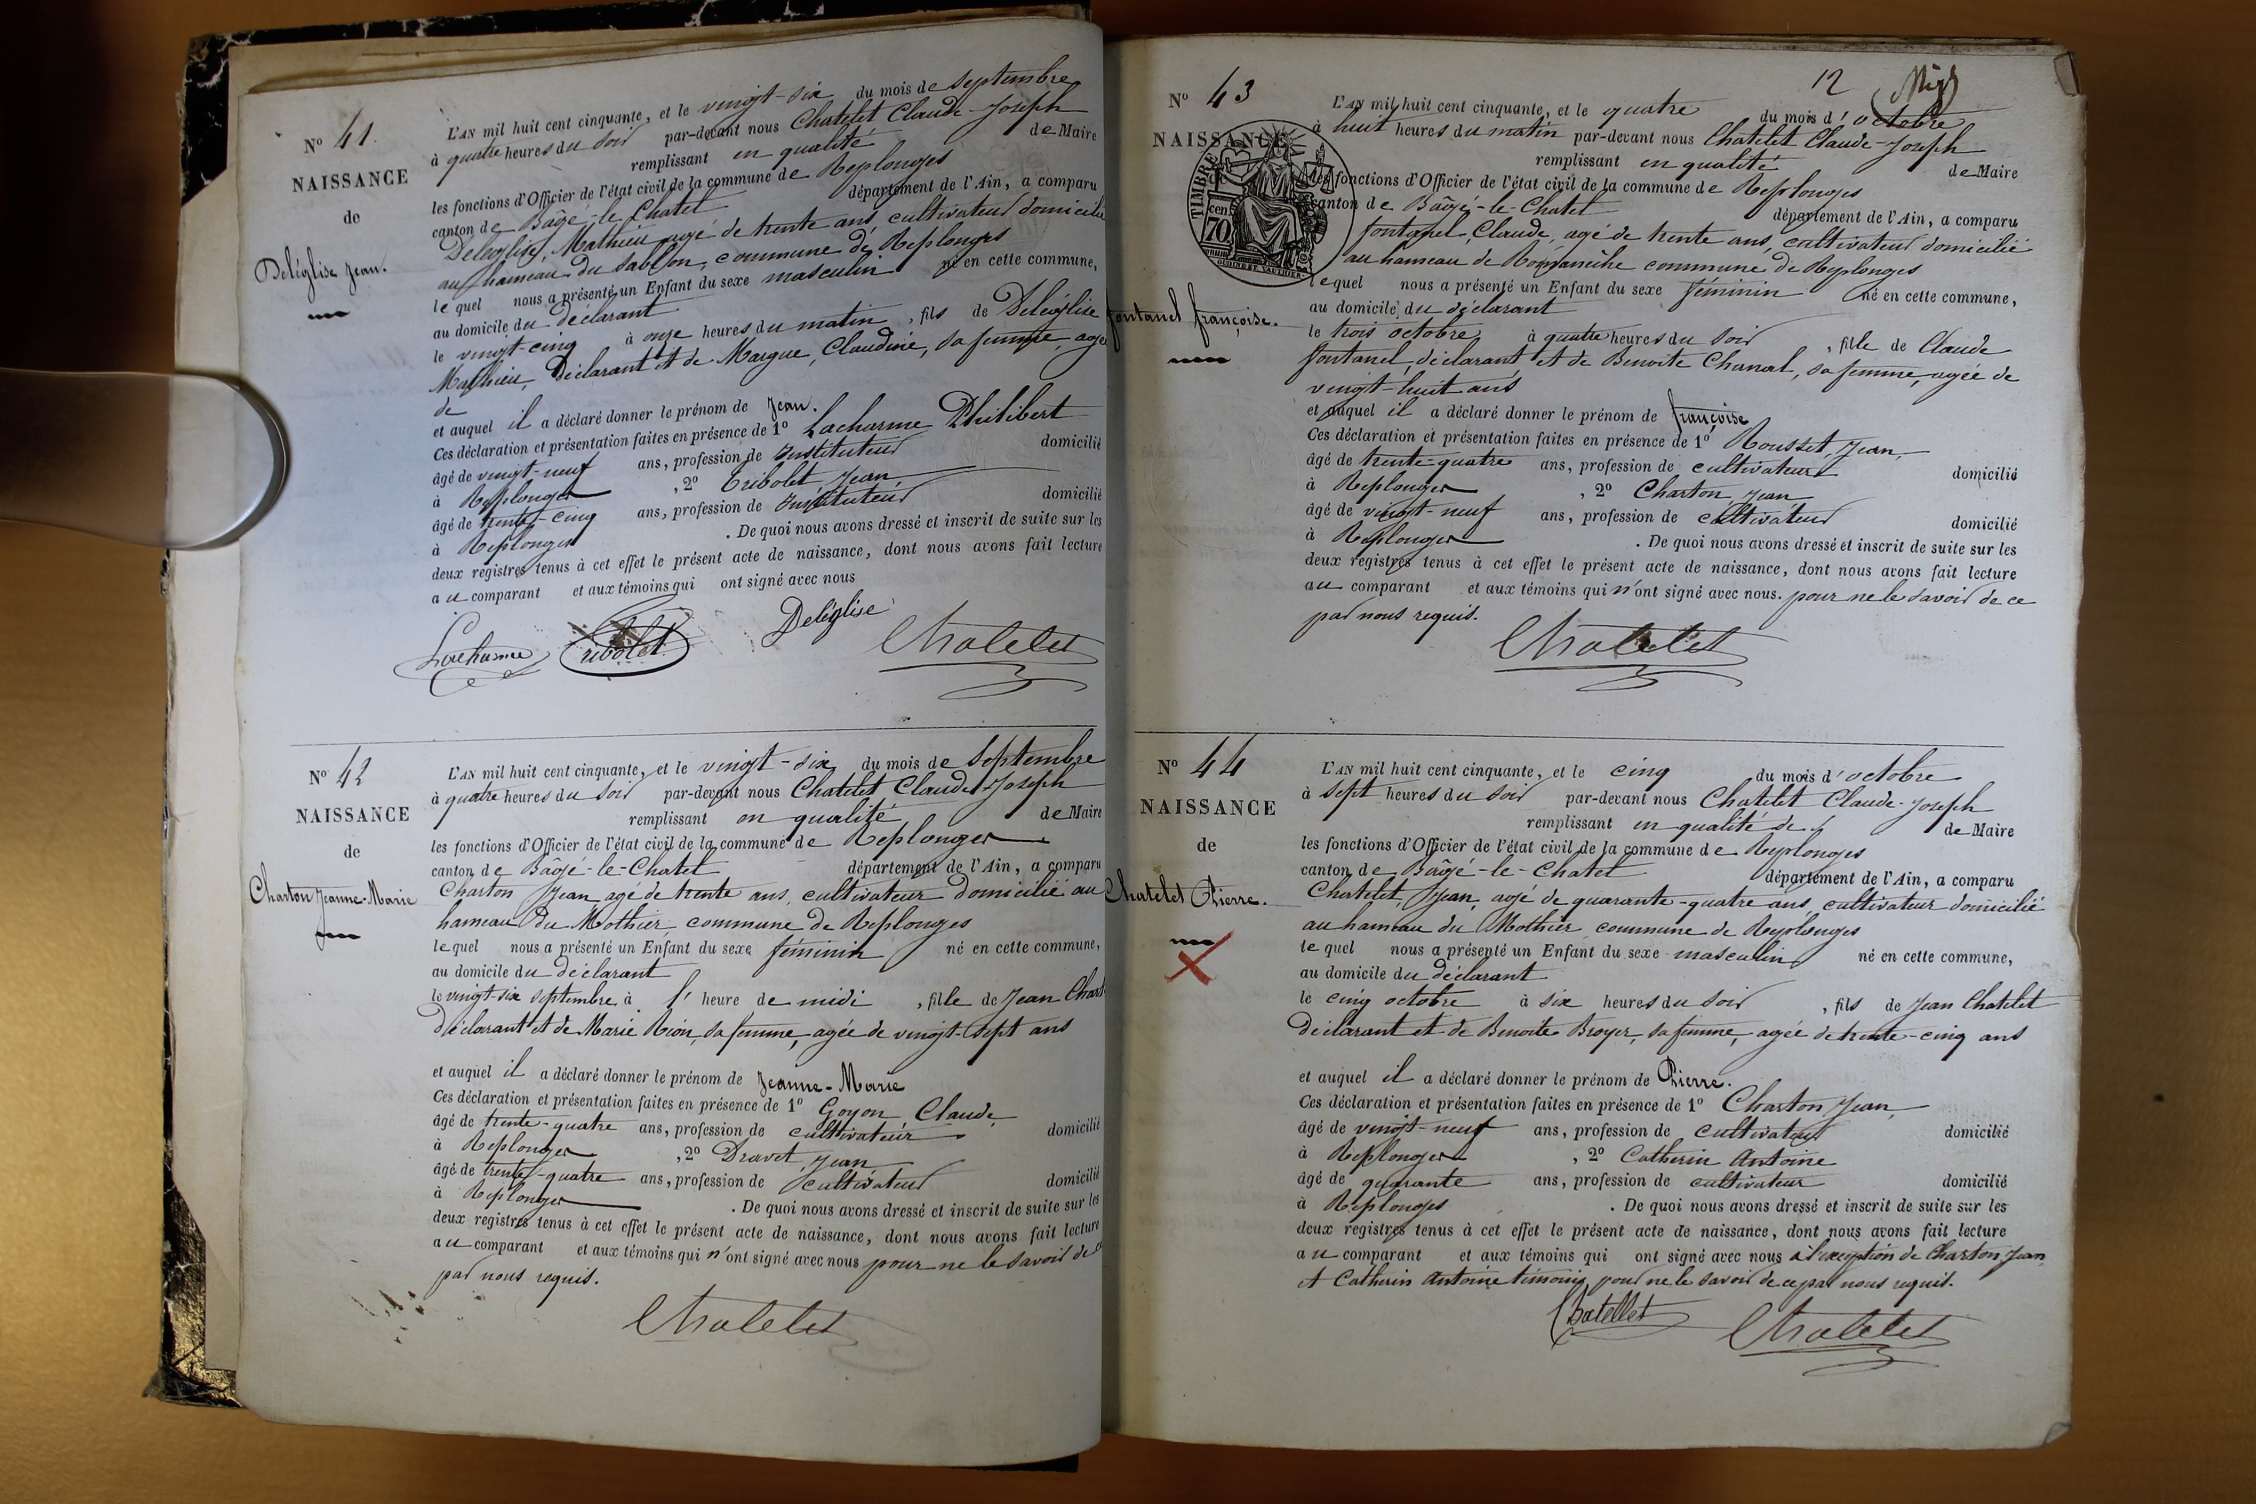 N° 41.
NAISSANCE
de
Deléglise Jean.
L'AN mil huit cent cinquante, et le vingt-six du mois de septembre
à quatre heures du soir par-devant nous Chatelet Claude-Joseph
remplissant en qualité de Maire
les fonctions d'Officier de l'état civil de la commune de Replonges
canton de Bâgé-le-Chatel département de l'Ain, a comparu
Deléglise, Mathieu agé de trente ans cultivateur domicilié
au hameau du Sablon, commune de Replonges
lequel nous a présenté un Enfant du sexe masculin né en cette commune,
au domicile du déclarant
le vingt-cinq à onze heures du matin, fils de Deléglise
Mathieu, Déclarant et de Margue, Claudine, sa femme, agée
de
et auquel il a déclaré donner le prénom de Jean.
Ces déclaration et présentation faites en présence de 1° Lacharme Philibert
âgé de vingt-neuf ans, profession de Instituteur domicilié
à Replonges, 2° Tribolet, Jean,
âgé de trente-cinq ans, profession de Instituteur domicilié
à Replonges. De quoi nous avons dressé et inscrit de suite sur les
deux registres tenus à cet effet le présent acte de naissance, dont nous avons fait lecture
au comparant et aux témoins qui ont signé avec nous
Lacharme Tribolet Deléglise Chatelet
N° 42
NAISSANCE
de
Charton Jeanne-Marie
L'AN mil huit cent cinquante, et le vingt-six du mois de Septembre
à quatre heures du soir par-devant nous Chatelet Claude-Joseph
remplissant en qualité de Maire
les fonctions d'Officier de l'état civil de la commune de Replonges
canton de Bâgé-le-Chatel département de l'Ain, a comparu
Charton Jean agé de trente ans, cultivateur domicilié au
hameau du Mothier commune de Replonges
lequel nous a présenté un Enfant du sexe féminin né en cette commune,
au domicile du déclarant
le vingt-six septembre à l'heure de midi, fille de Jean Chart
Déclarant et de Marie Rion, sa femme, agée de vingt-sept ans
et auquel il a déclaré donner le prénom de Jeanne-Marie
Ces déclaration et présentation faites en présence de 1° Goyon Claude,
âgé de trente-quatre ans, profession de cultivateur domicilié
à Replonges, 2° Dravet, Jean
âgé de trente-quatre ans, profession de cultivateur domicilié
à Replonges. De quoi nous avons dressé et inscrit de suite sur les
deux registres tenus à cet effet le présent acte de naissance, dont nous avons fait lecture
au comparant et aux témoins qui n'ont signé avec nous pour ne le savoir de ce
par nous requis.
Chatelet
12
N° 43
NAISSANCE
TIMBRE
70 cen.
fontanel françoise.
L'AN mil huit cent cinquante, et le quatre du mois d'octobre
à huit heures du matin par-devant nous Chatelet Claude-Joseph
remplissant en qualité de Maire
les fonctions d'Officier de l'état civil de la commune de Replonges
canton de Bâgé-le-Chatel département de l'Ain, a comparu
fontanel, Claude, agé de trente ans, cultivateur domicilié
au hameau de Romanèche commune de Replonges
lequel nous a présenté un Enfant du sexe féminin né en cette commune,
au domicile du déclarant
le trois octobre à quatre heures du soir, fille de Claude
fontanel, déclarant et de Benoite Chanal, sa femme, agée de
vingt-huit ans
et auquel il a déclaré donner le prénom de françoise
Ces déclaration et présentation faites en présence de 1° Rousset, Jean,
âgé de trente-quatre ans, profession de cultivateur domicilié
à Replonges, 2° Charton, Jean
âgé de vingt-neuf ans, profession de cultivateur domicilié
à Replonges. De quoi nous avons dressé et inscrit de suite sur les
deux registres tenus à cet effet le présent acte de naissance, dont nous avons fait lecture
au comparant et aux témoins qui n'ont signé avec nous. pour ne le savoir de ce
par nous requis.
Chatelet
N° 44
NAISSANCE
de
Chatelet Pierre.
L'AN mil huit cent cinquante, et le cinq du mois d'octobre
à sept heures du soir par-devant nous Chatelet Claude-Joseph
remplissant en qualité de de Maire
les fonctions d'Officier de l'état civil de la commune de Replonges
canton de Bâgé-le-Chatel département de l'Ain, a comparu
Chatelet, Jean, agé de quarante-quatre ans cultivateur domicilié
au hameau du Mothier commune de Replonges
lequel nous a présenté un Enfant du sexe masculin né en cette commune,
au domicile du déclarant
le cinq octobre à six heures du soir, fils de Jean Chatelet
Déclarant et de Benoite Broyer, sa femme, agée de trente-cinq ans
et auquel il a déclaré donner le prénom de Pierre.
Ces déclaration et présentation faites en présence de 1° Charton Jean,
âgé de vingt-neuf ans, profession de cultivateur domicilié
à Replonges, 2° Catherin Antoine
âgé de quarante ans, profession de cultivateur domicilié
à Replonges. De quoi nous avons dressé et inscrit de suite sur les
deux registres tenus à cet effet le présent acte de naissance, dont nous avons fait lecture
au comparant et aux témoins qui ont signé avec nous à l'exception de Charton Jean
et Catherin Antoine témoins pour ne le savoir de ce par nous requis.
Chatellet Chatelet